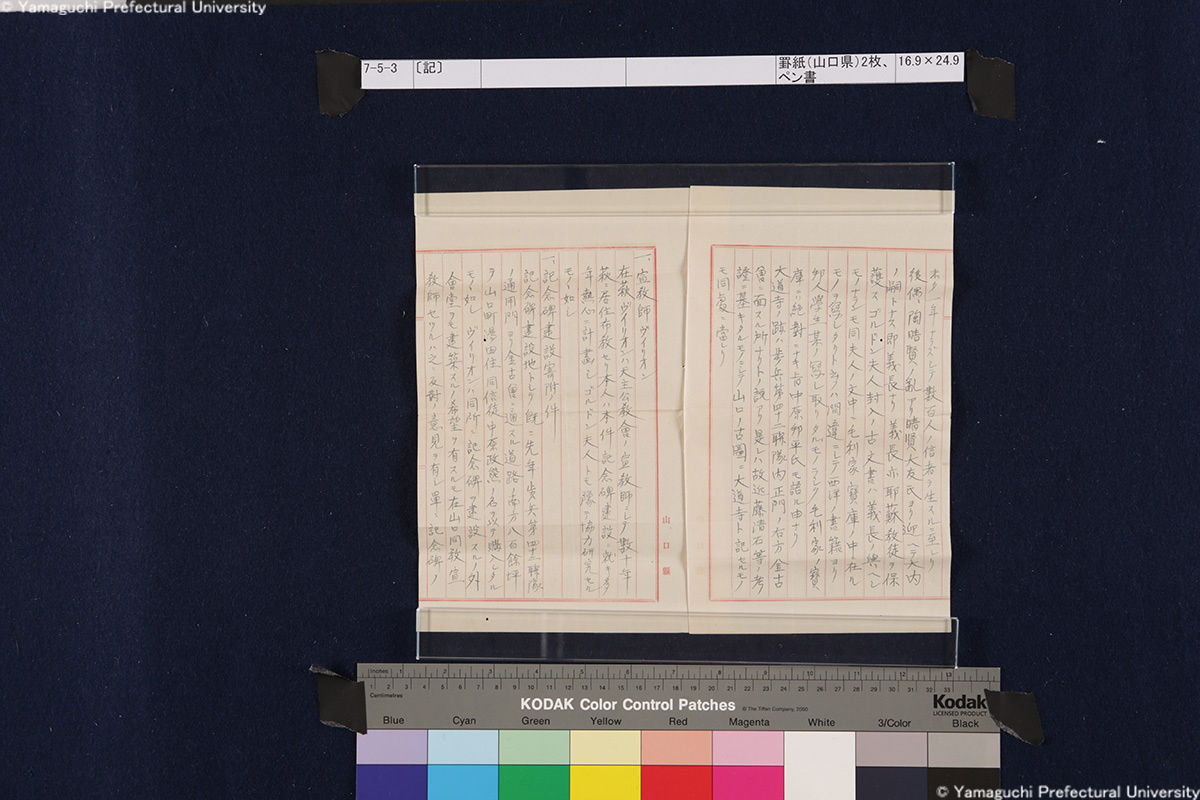 © Yamaguchi Prefectural University
7-5-3
〔記〕
罫紙(山口県)2枚、
ペン書
16.9×24.9
ホク一年ナラズシテ数百人ノ信者ヲ生スルニ至レリ
後偶陶晴賢ノ乱アリ晴賢大友氏ヨリ迎ヘテ大内
ノ嗣トナス即義長ナリ義長亦耶蘇教徒ヲ保
護スゴルドン夫人封入ノ古文書ハ義長ノ與ヘシ
モノナランモ同夫人ノ文中ニ毛利家宝庫ノ中ニ在ル
モノヲ写シタリト云フハ間違ニシテ西洋ノ書籍ヨリ
卯人学生某ノ写シ取リタルモノラシク毛利家ノ宝
庫ニハ絶対ニナキ旨中原邦平氏モ語ル由ナリ
大道寺ノ跡ハ歩兵第四十二聯隊内正門ノ右方金古
曽ニ面スル所ナリトノ説アリ是レハ故近藤清石等ノ考
證ニ基キタルモノニシテ山口ノ古図ニ大道寺ト記セルモノ
モ同処ニ当レリ
山口縣
一、宣教師ヴイリオン
在萩ヴイリオンハ天主公教会ノ宣教師ニシテ数十年
萩ニ居住布教セリ本人ハ本件記念碑建設ニ就キ多
年熱心ニ計画シゴルドン夫人トモ隊テ協力研究セル
モノノ如シ
一、記念碑建設寄附ノ件
記念碑建設地トシテ既ニ先年歩兵第四十二聯隊
ノ通用門ヨリ金古曽ニ通スル道路ノ南方八百餘坪
ヲ山口町湯田住同信徒中原政熊ノ名ヲ以テ購入シタル
モノノ如シヴイリオンハ同所ニ記念碑ヲ建設スルノ外
会堂ヲモ建築スルノ希望ヲ有スルモ在山口同教宣
教師セツルハ之ニ反対ノ意見ヲ有シ単ニ記念碑ノ
Inches
Centimetres
KODAK Color Control Patches
© The Tiffen Company, 2000
Kodak
LICENSED PRODUCT
Blue
Cyan
Green
Yellow
Red
Magenta
White
3/Color
Black
© Yamaguchi Prefectural University